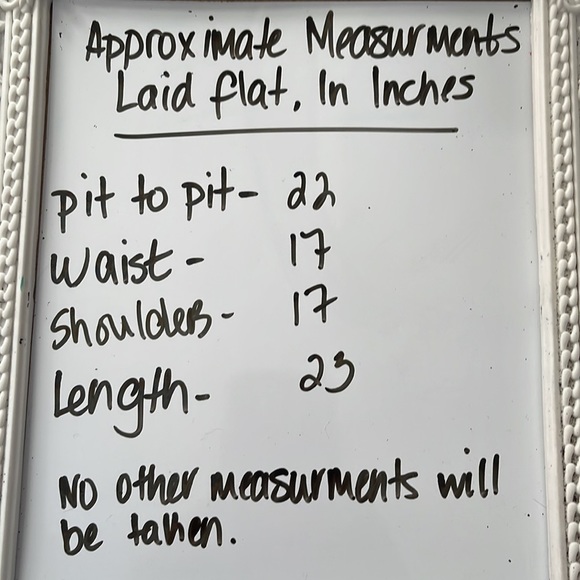 Approximate Measurments
Laid flat, In Inches
pit to pit- 22
Waist - 17
Shoulders - 17
Length- 23
No other measurments will
be taken.